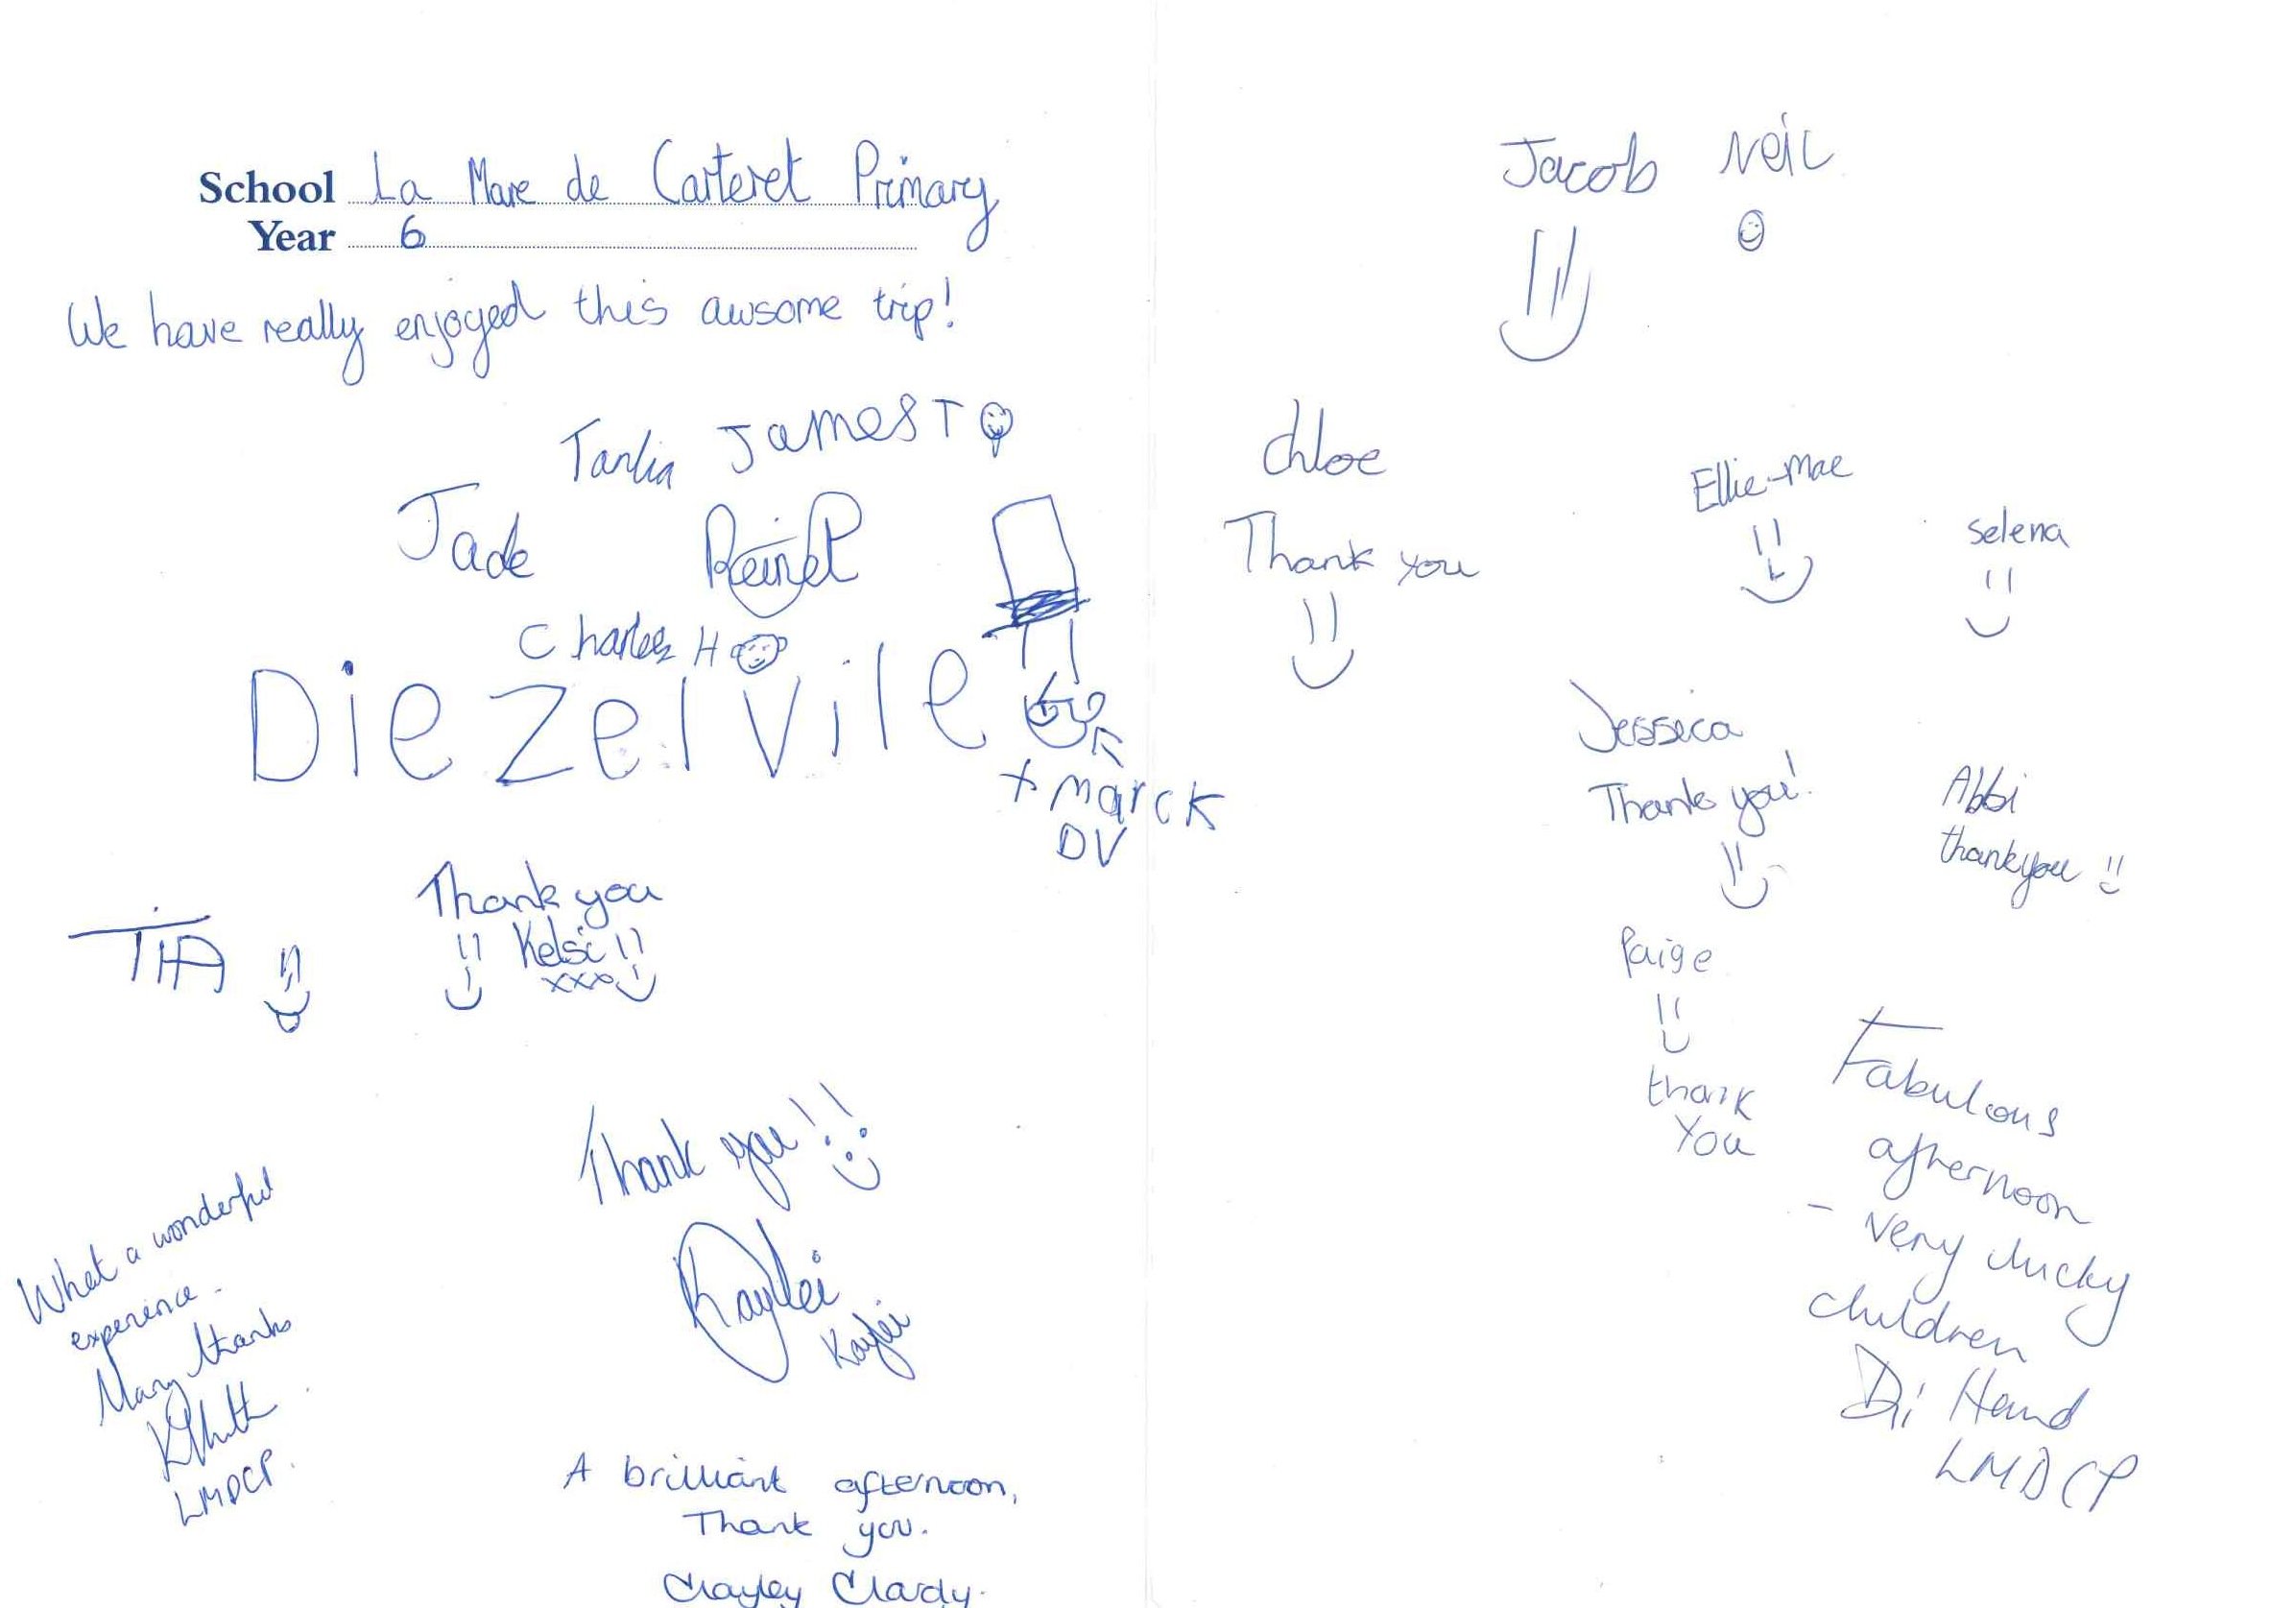 School La Mare de Carteret Primary
Year 6
We have really enjoyed this awsome trip!
James T
Jade
Charles H
Diezelvile
+ marck
DV
TIA
Thank you
Kelsi
xxx
Thank you!!
Kayllei
Kayllei
What a wonderful
experience.
Many thanks
LMDCP.
A brilliant afternoon,
Thank you.
Jacob Neil
Chloe
Thank you
Ellie-Mae
Selena
Jessica
Thank you!
Abbi
thankyou
Paige
thank
You
Fabulous
afternoon
- very lucky
children
Di Hand
LMDCP